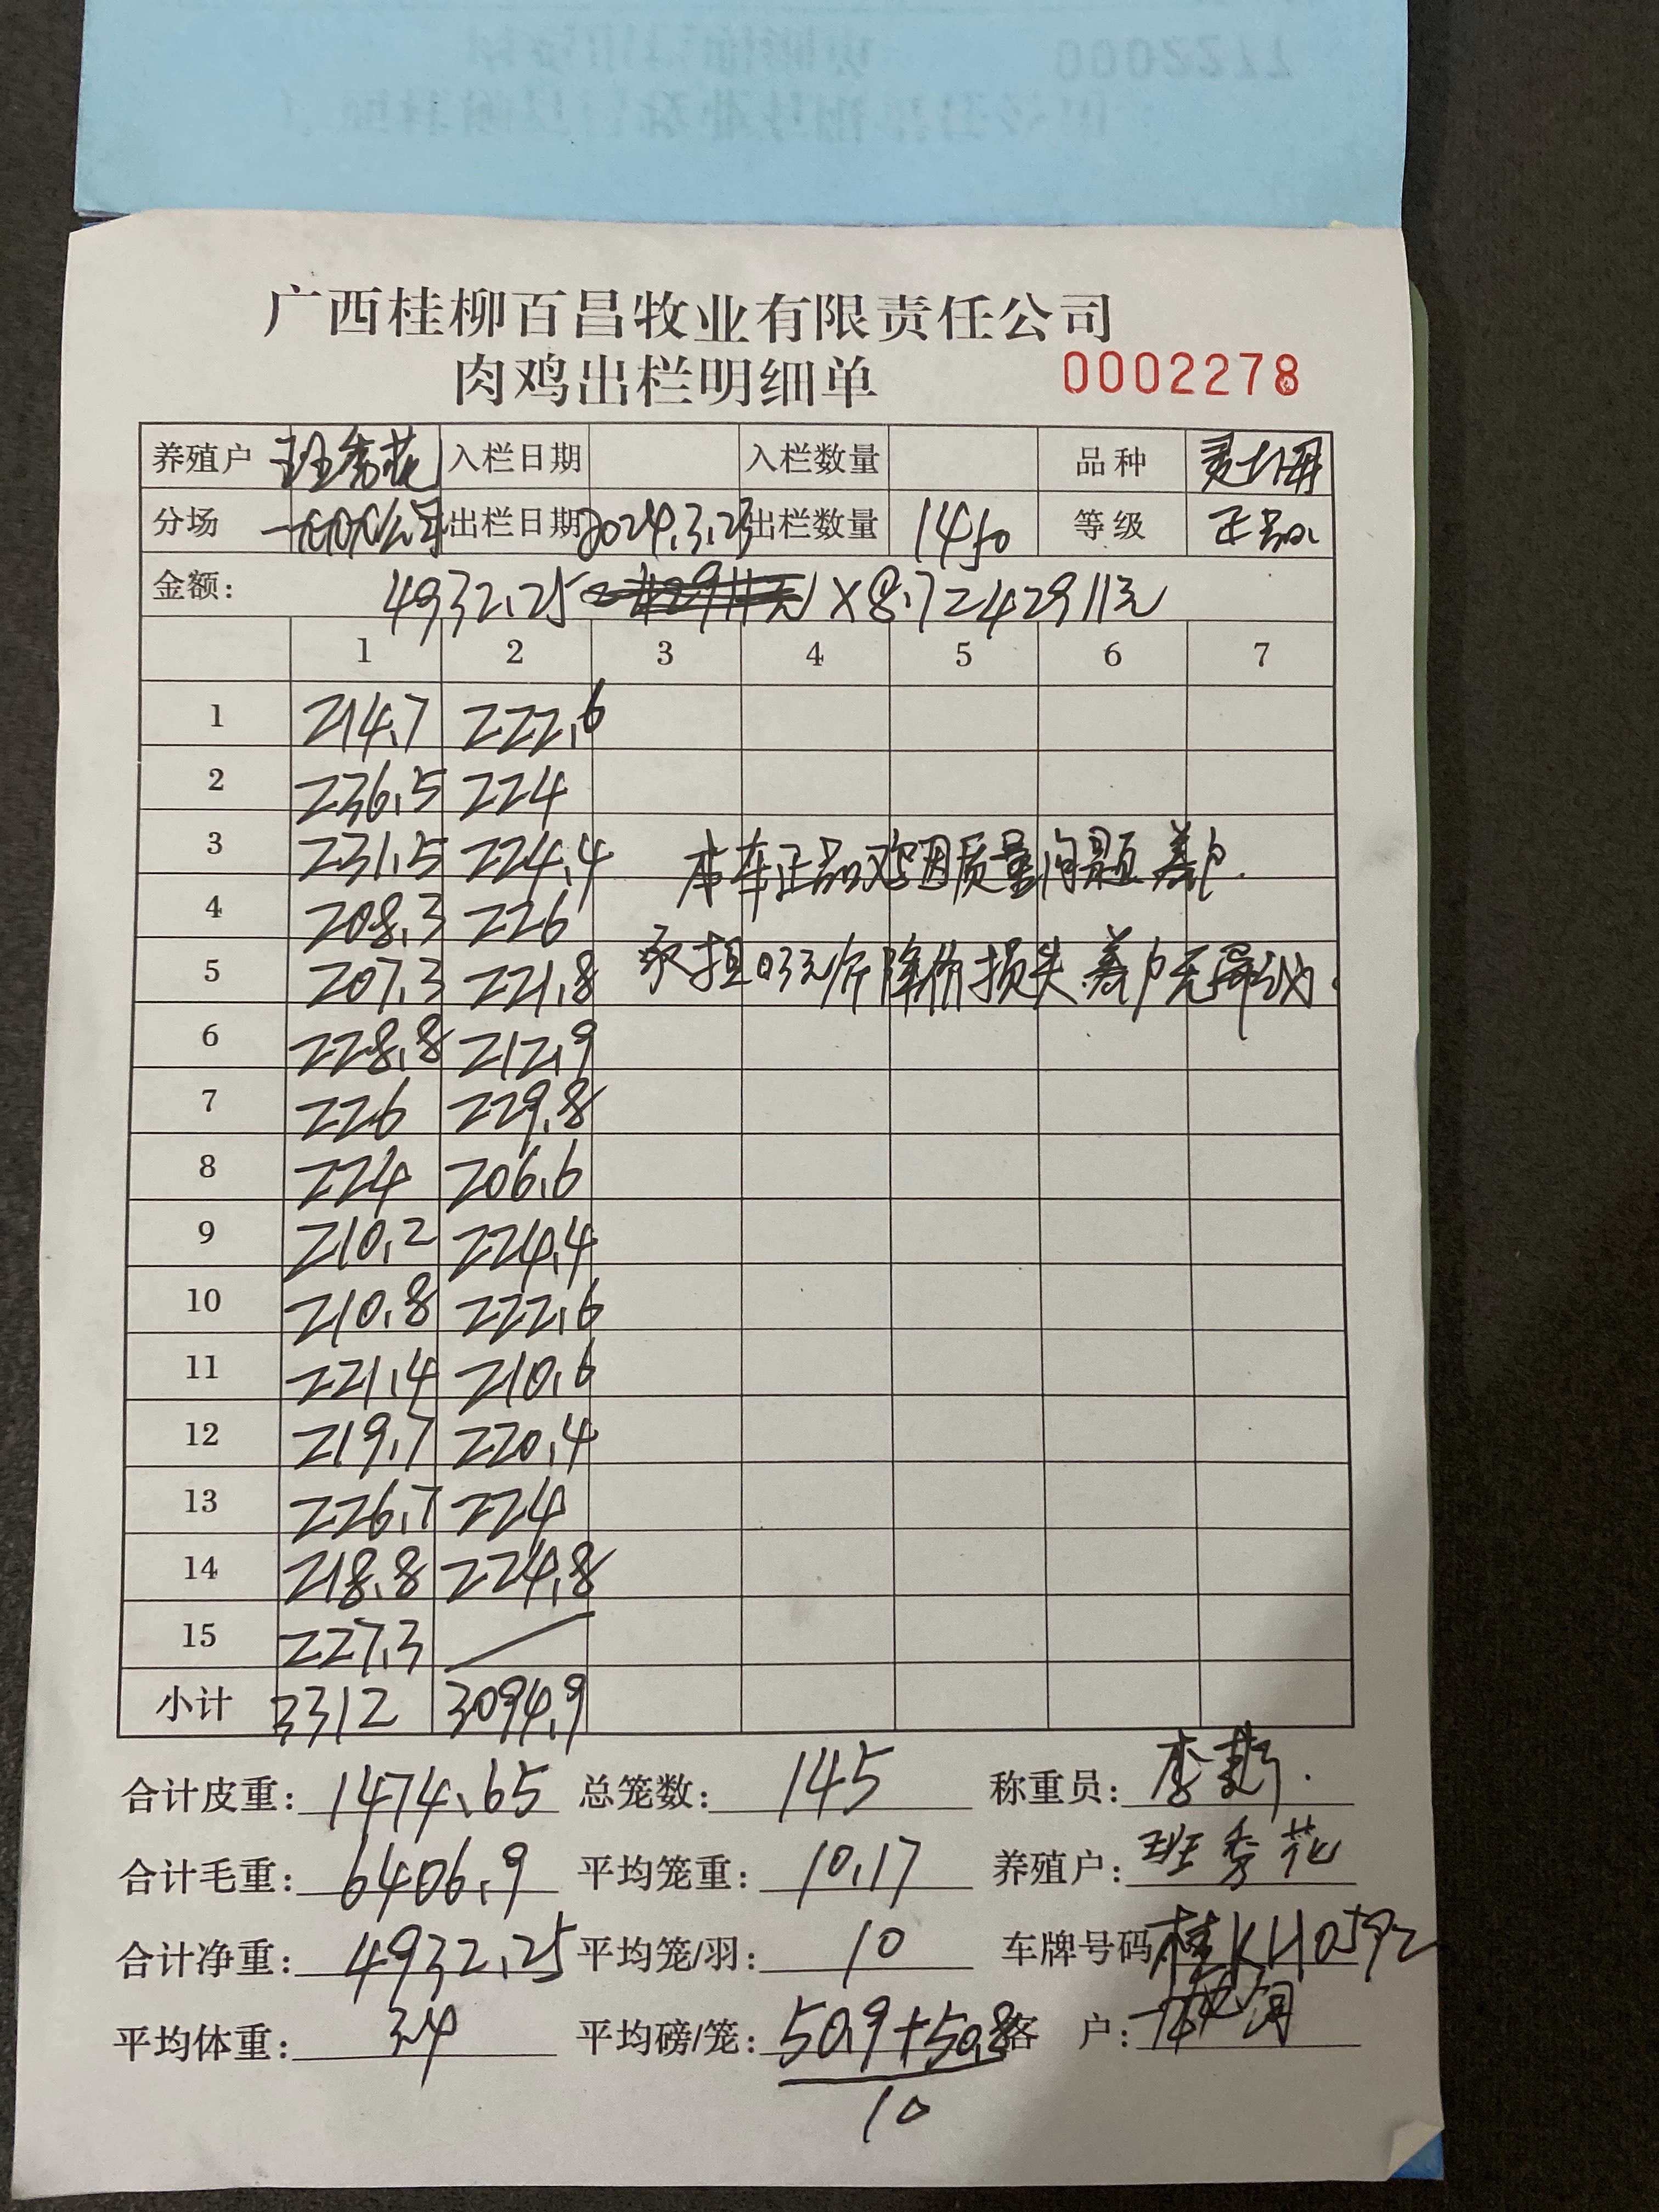 广西桂柳百昌牧业有限责任公司
肉鸡出栏明细单 0002278
养殖户 班秀花 入栏日期 入栏数量 品种
分场 出栏日期 2024.3.23 出栏数量 1450 等级 正品
金额: 4932.25 × 8.7=42911元
1 2 3 4 5 6 7
1 214.7 222.6
2 236.5 224
3 231.5 224.4 本车正品鸡因质量问题养户
4 208.3 226
5 207.3 221.8 承担0.3元/斤降价损失 养户无异议.
6 228.8 212.9
7 226 229.8
8 224 206.6
9 210.2 224.4
10 210.8 222.6
11 221.4 210.6
12 219.7 220.4
13 226.7 224
14 218.8 224.8
15 227.3
小计 3312 3094.9
合计皮重: 1474.65 总笼数: 145 称重员: 李
合计毛重: 6406.9 平均笼重: 10.17 养殖户: 班秀花
合计净重: 4932.25 平均笼/羽: 10 车牌号码 桂KH0592
平均体重: 3.4 平均磅/笼: 50.9+50.8 客 户:
10